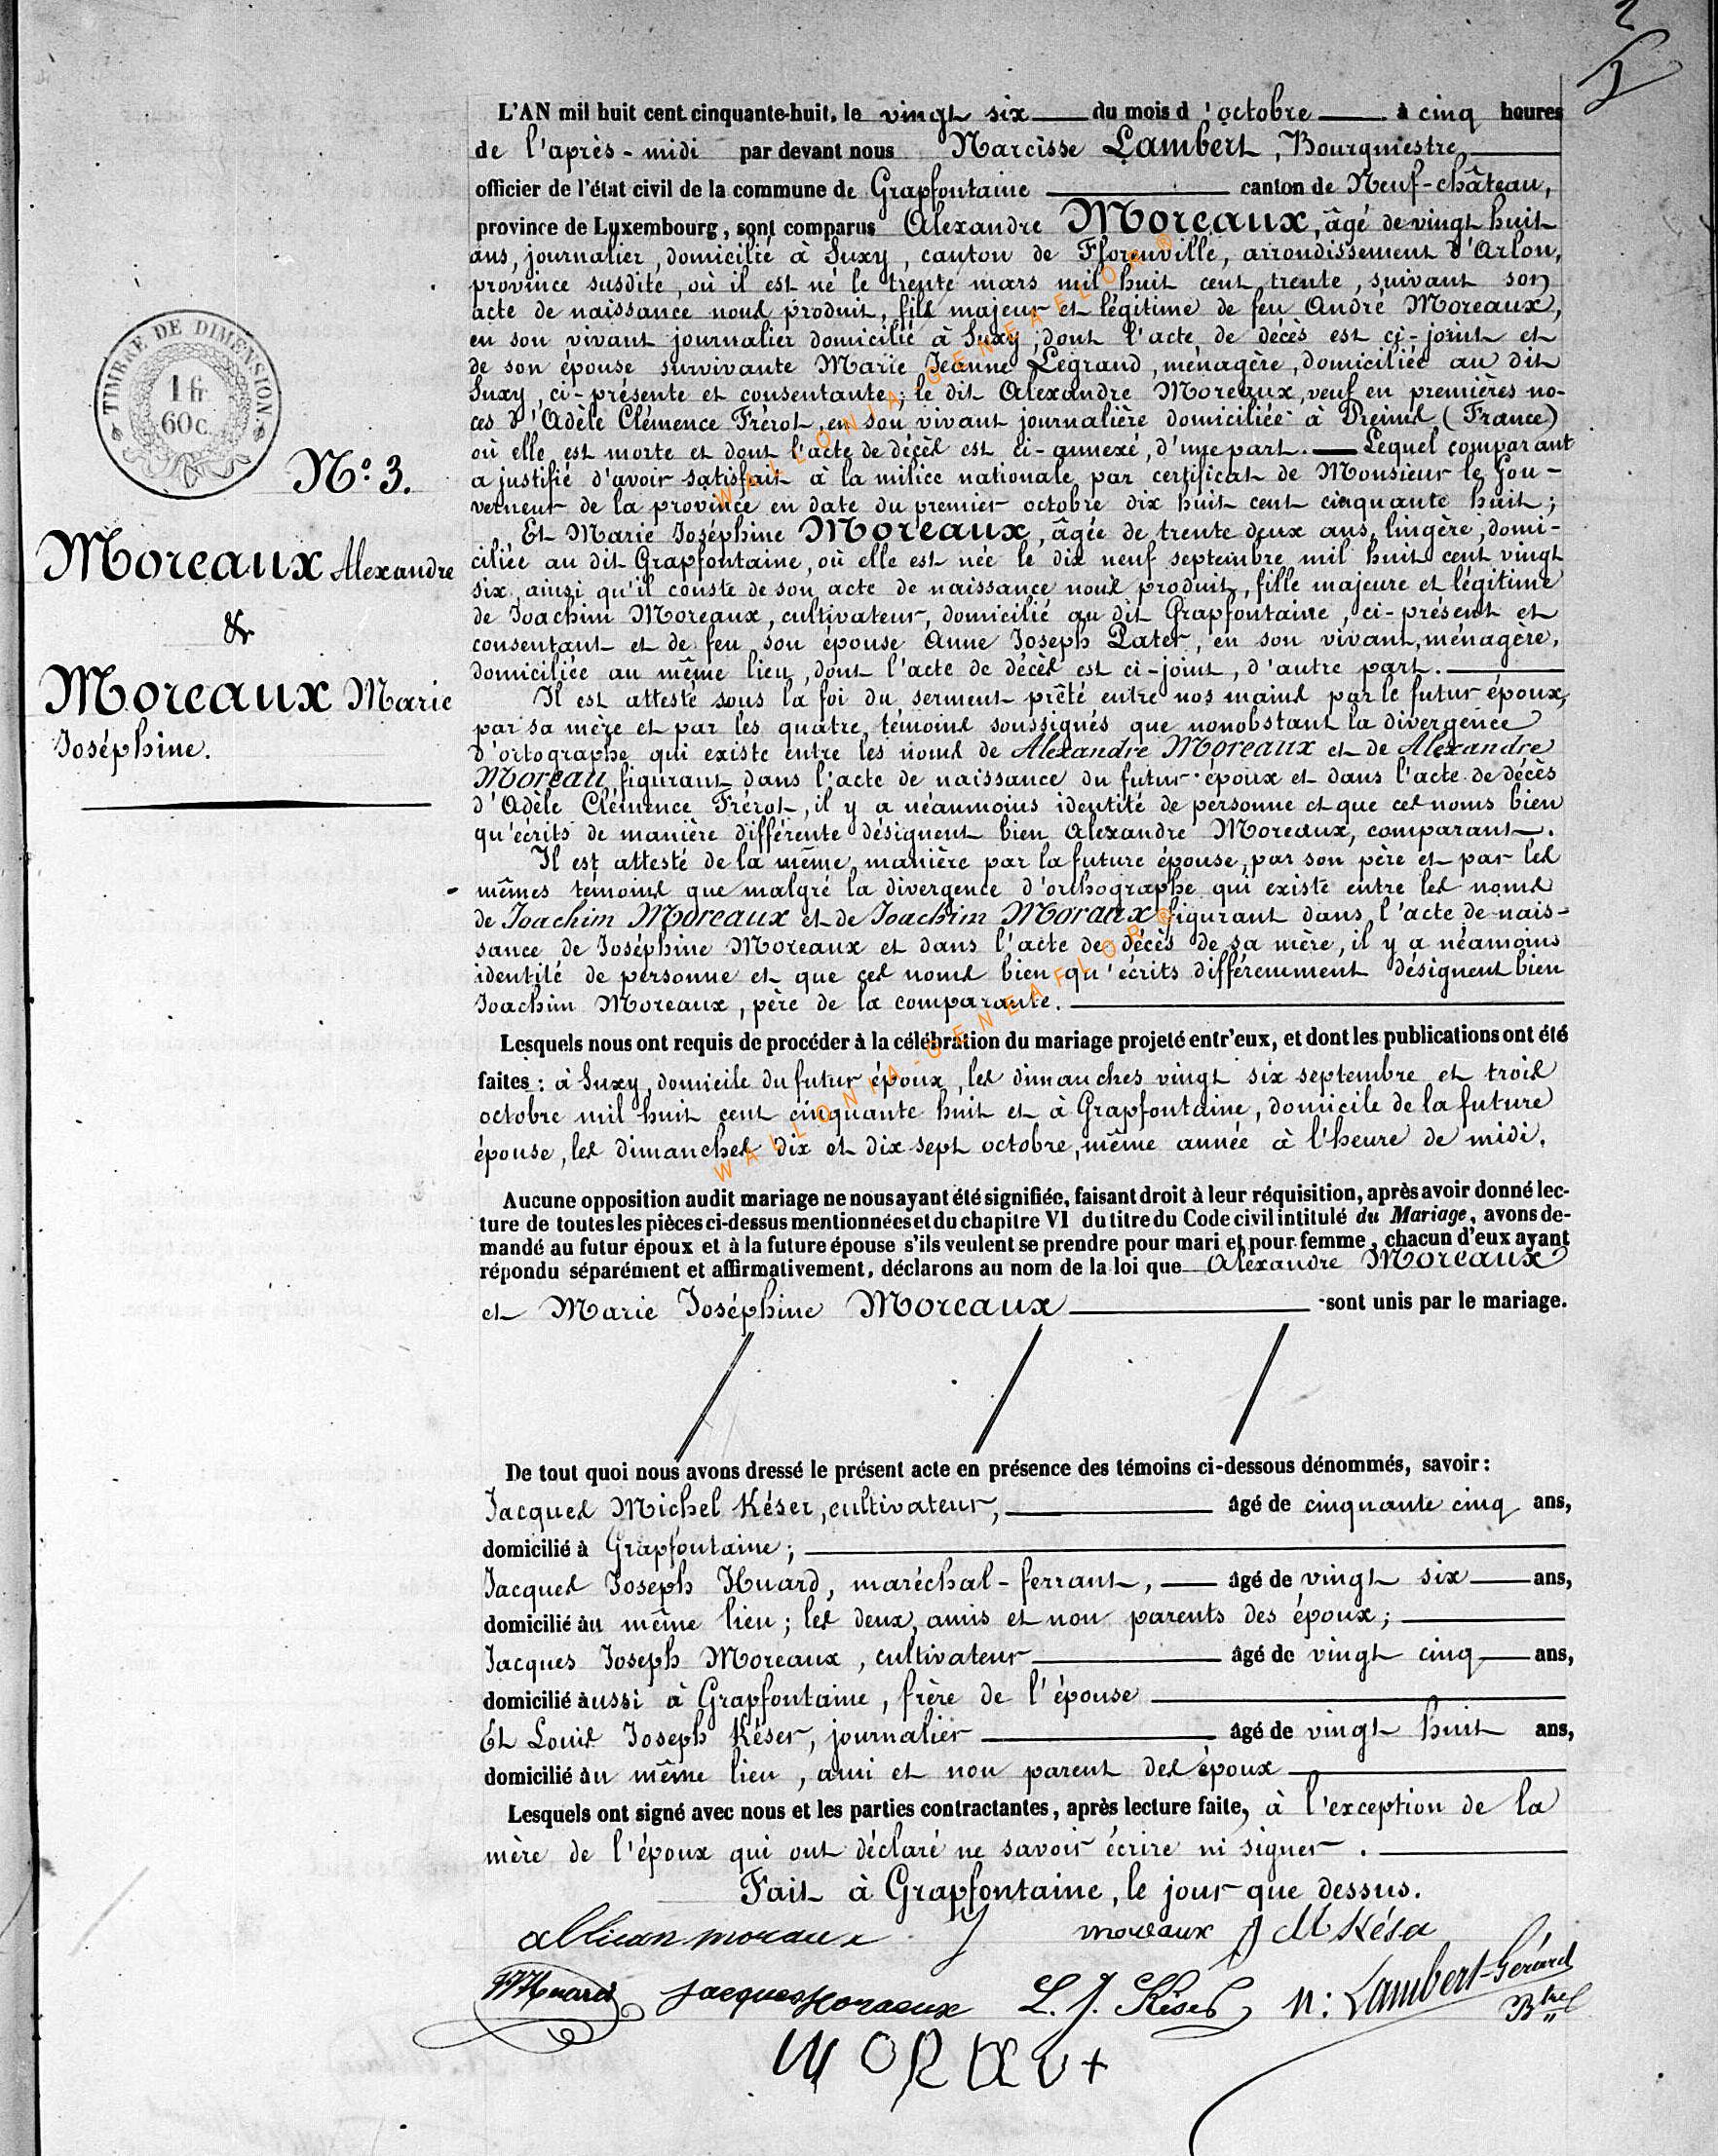 2
TIMBRE DE DIMENSION
1 fr
60 c.
N.° 3.
Moreaux Alexandre
&
Moreaux Marie
Joséphine.
L'AN mil huit cent cinquante-huit, le vingt six du mois d'octobre à cinq heures
de l'après-midi par devant nous Narcisse Lambert, Bourgmestre,
officier de l'état civil de la commune de Grapfontaine canton de Neuf-château,
province de Luxembourg, sont comparus Alexandre Moreaux, âgé de vingt huit
ans, journalier, domicilié à Suxy, canton de Florenville, arrondissement d'Arlon,
province susdite, où il est né le trente mars mil huit cent trente, suivant son
acte de naissance nous produit, fils majeur et légitime de feu André Moreaux,
en son vivant journalier domicilié à Suxy, dont l'acte de décès est ci-joint et
de son épouse survivante Marie Jeanne Legrand, ménagère, domiciliée au dit
Suxy, ci-présente et consentante; le dit Alexandre Moreaux, veuf en premières no-
ces d'Adèle Clémence Frérot, en son vivant journalière domiciliée à Preims (France)
où elle est morte et dont l'acte de décès est ci-annexé, d'une part. Lequel comparant
a justifié d'avoir satisfait à la milice nationale par certificat de Monsieur le Gou-
verneur de la province en date du premier octobre dix huit cent cinquante huit;
Et Marie Joséphine Moreaux, âgée de trente deux ans, lingère, domi-
ciliée au dit Grapfontaine, où elle est née le dix neuf septembre mil huit cent vingt
six, ainsi qu'il conste de son acte de naissance nous produit, fille majeure et légitime
de Joachim Moreaux, cultivateur, domicilié au dit Grapfontaine, ci-présent et
consentant et de feu son épouse Anne Joseph Pater, en son vivant, ménagère,
domiciliée au même lieu, dont l'acte de décès est ci-joint, d'autre part.
Il est attesté sous la foi du serment prêté entre nos mains par le futur époux,
par sa mère et par les quatre témoins soussignés que nonobstant la divergence
d'ortographe qui existe entre les noms de Alexandre Moreaux et de Alexandre
Moreau figurant dans l'acte de naissance du futur époux et dans l'acte de décès
d'Adèle Clémence Frérot, il y a néanmoins identité de personne et que ces noms bien
qu'écrits de manière différente désignent bien Alexandre Moreaux, comparant.
Il est attesté de la même manière par la future épouse, par son père et par les
mêmes témoins que malgré la divergence d'orthographe qui existe entre les noms
de Joachim Moreaux et de Joachim Moraux figurant dans l'acte de nais-
sance de Joséphine Moreaux et dans l'acte de décès de sa mère, il y a néamoins
identité de personne et que ces noms bien qu'écrits différemment désignent bien
Joachim Moreaux, père de la comparante.
Lesquels nous ont requis de procéder à la célébration du mariage projeté entr'eux, et dont les publications ont été
faites : à Suxy, domicile du futur époux, les dimanches vingt six septembre et trois
octobre mil huit cent cinquante huit et à Grapfontaine, domicile de la future
épouse, les dimanches dix et dix sept octobre, même année à l'heure de midi.
Aucune opposition audit mariage ne nous ayant été signifiée, faisant droit à leur réquisition, après avoir donné lec-
ture de toutes les pièces ci-dessus mentionnées et du chapitre VI du titre du Code civil intitulé du Mariage, avons de-
mandé au futur époux et à la future épouse s'ils veulent se prendre pour mari et pour femme, chacun d'eux ayant
répondu séparément et affirmativement, déclarons au nom de la loi que Alexandre Moreaux
et Marie Joséphine Moreaux sont unis par le mariage.
De tout quoi nous avons dressé le présent acte en présence des témoins ci-dessous dénommés, savoir :
Jacques Michel Késer, cultivateur, âgé de cinquante cinq ans,
domicilié à Grapfontaine;
Jacques Joseph Huard, maréchal-ferrant, âgé de vingt six ans,
domicilié au même lieu; les deux, amis et non parents des époux;
Jacques Joseph Moreaux, cultivateur âgé de vingt cinq ans,
domicilié aussi à Grapfontaine, frère de l'épouse
Et Louis Joseph Késer, journalier âgé de vingt huit ans,
domicilié au même lieu, ami et non parent des époux
Lesquels ont signé avec nous et les parties contractantes, après lecture faite, à l'exception de la
mère de l'époux qui ont déclaré ne savoir écrire ni signer.
Fait à Grapfontaine, le jour que dessus.
moraux moreaux J M Késer
Huard Jacques Moraeux L. J. Késer N: Lambert-Gérard
Btre
MORAU+
WALLONIA-GENEAFLOR®
WALLONIA-GENEAFLOR®